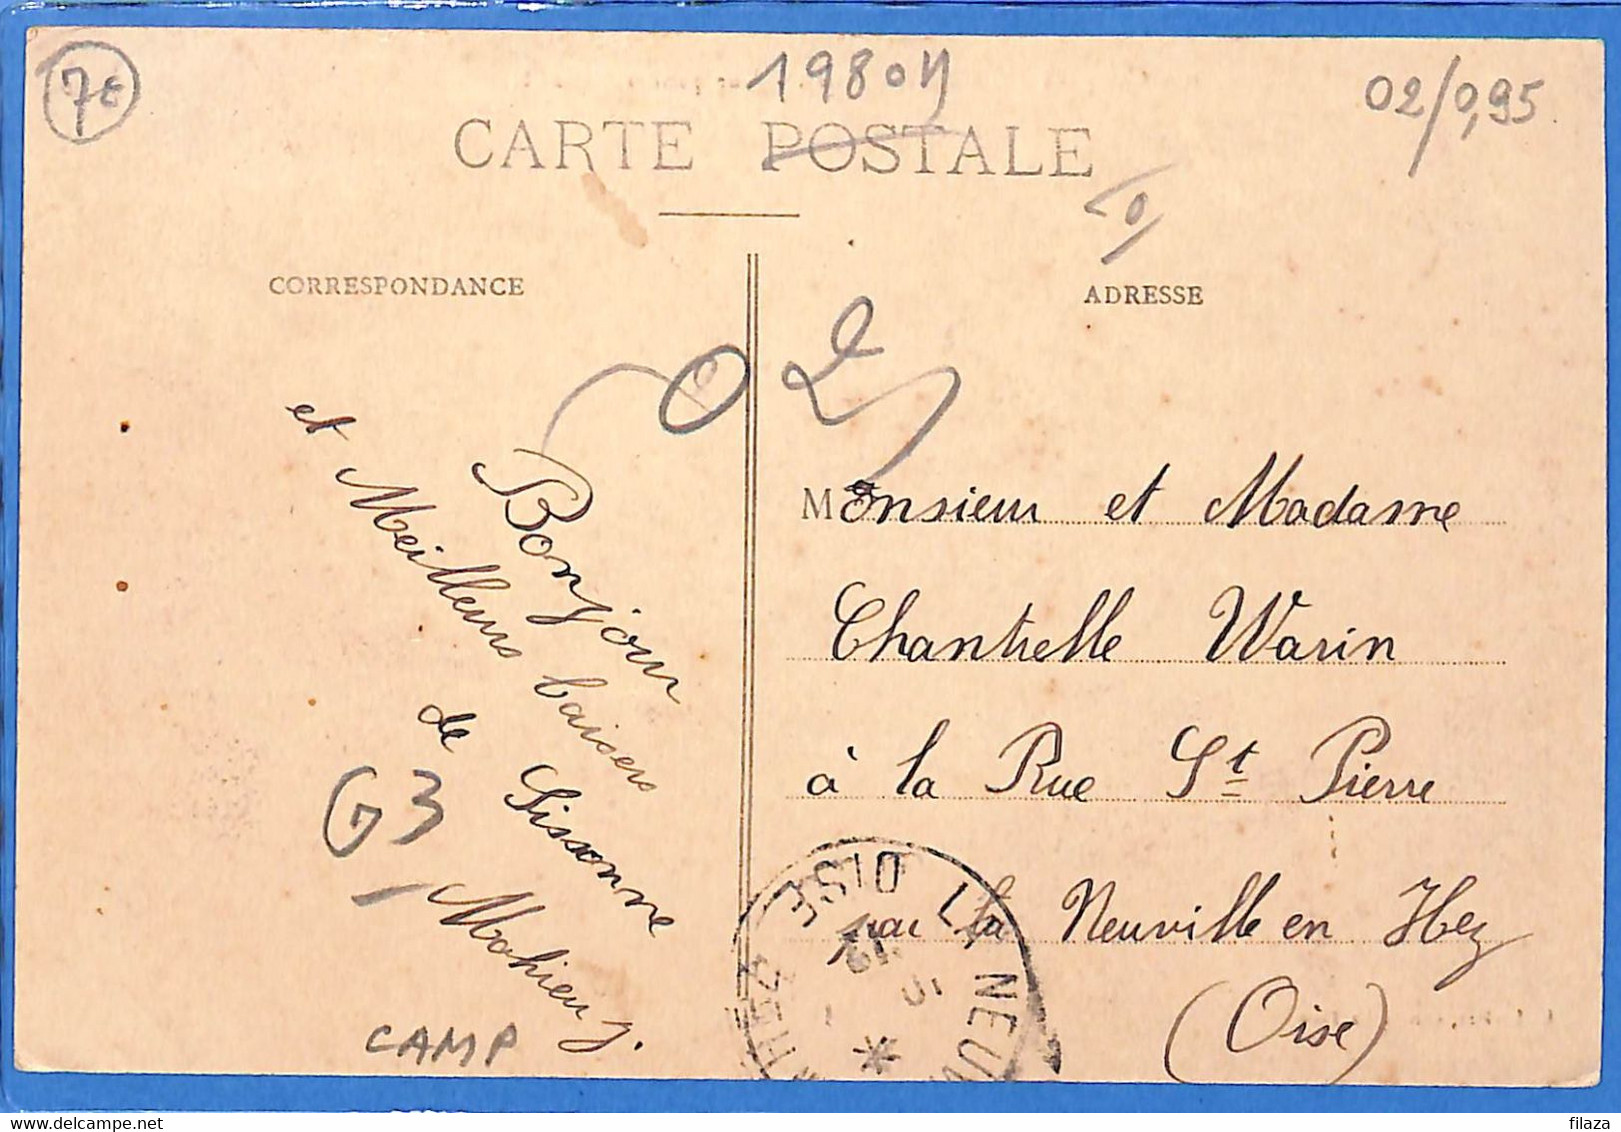 7€
19801
02/0,95
CARTE POSTALE
CORRESPONDANCE
ADRESSE
02
Bonjour
et Meilleurs baisers
de Sissonne
Mahieu J.
G3
CAMP
Monsieur et Madame
Chantrelle Warin
à la Rue St Pierre
par la Neuville en Hez
(Oise)
LA NEUV
EN HEZ
OISE
filaza